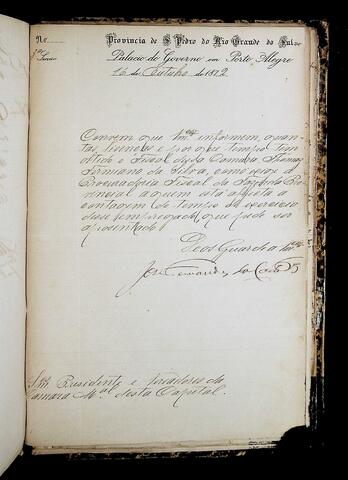 No.
Provincia de S. Pedro do Rio Grande do Sul
3ª Secção
Palacio do Governo em Porto Alegre
16 de Outubro de 1872
Convem que Vmces informem, quan
tas licenças e por que tempo tem
obtido o Fiscal dessa Camara Thomaz
Firmiano da Silva, como exige a
Procuradoria Fiscal da Fazenda Pro
vincial a quem está affecta a
contagem de tempo de exercicio
desse empregado, que pede ser
aposentado.
Deos Guarde a Vmces
José Fernandes da Costa
Snrs. Presidente e Vereadores da
Camara Mal desta Capital.